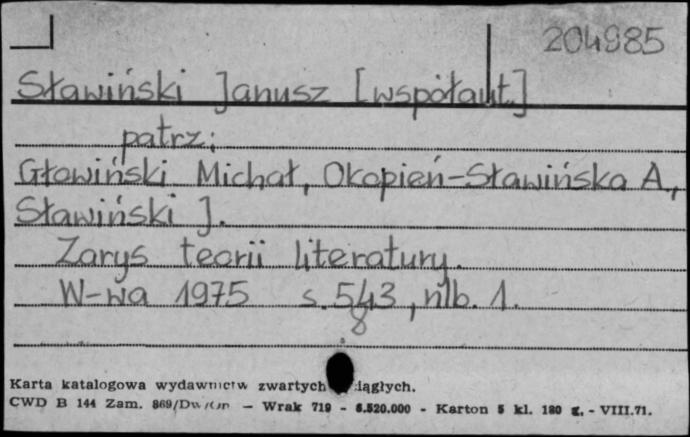 204985
Sławiński Janusz [współaut.]
patrz:
Głowiński Michał, Okopień-Sławińska A.,
Sławiński J.
Zarys teorii literatury.
W-wa 1975 s. 543, nlb. 1.
8
Karta katalogowa wydawnictw zwartych ciągłych.
CWD B 144 Zam. 869/ — Wrak 719 - 6.520.000 - Karton 5 kl. 180 g. - VIII.71.